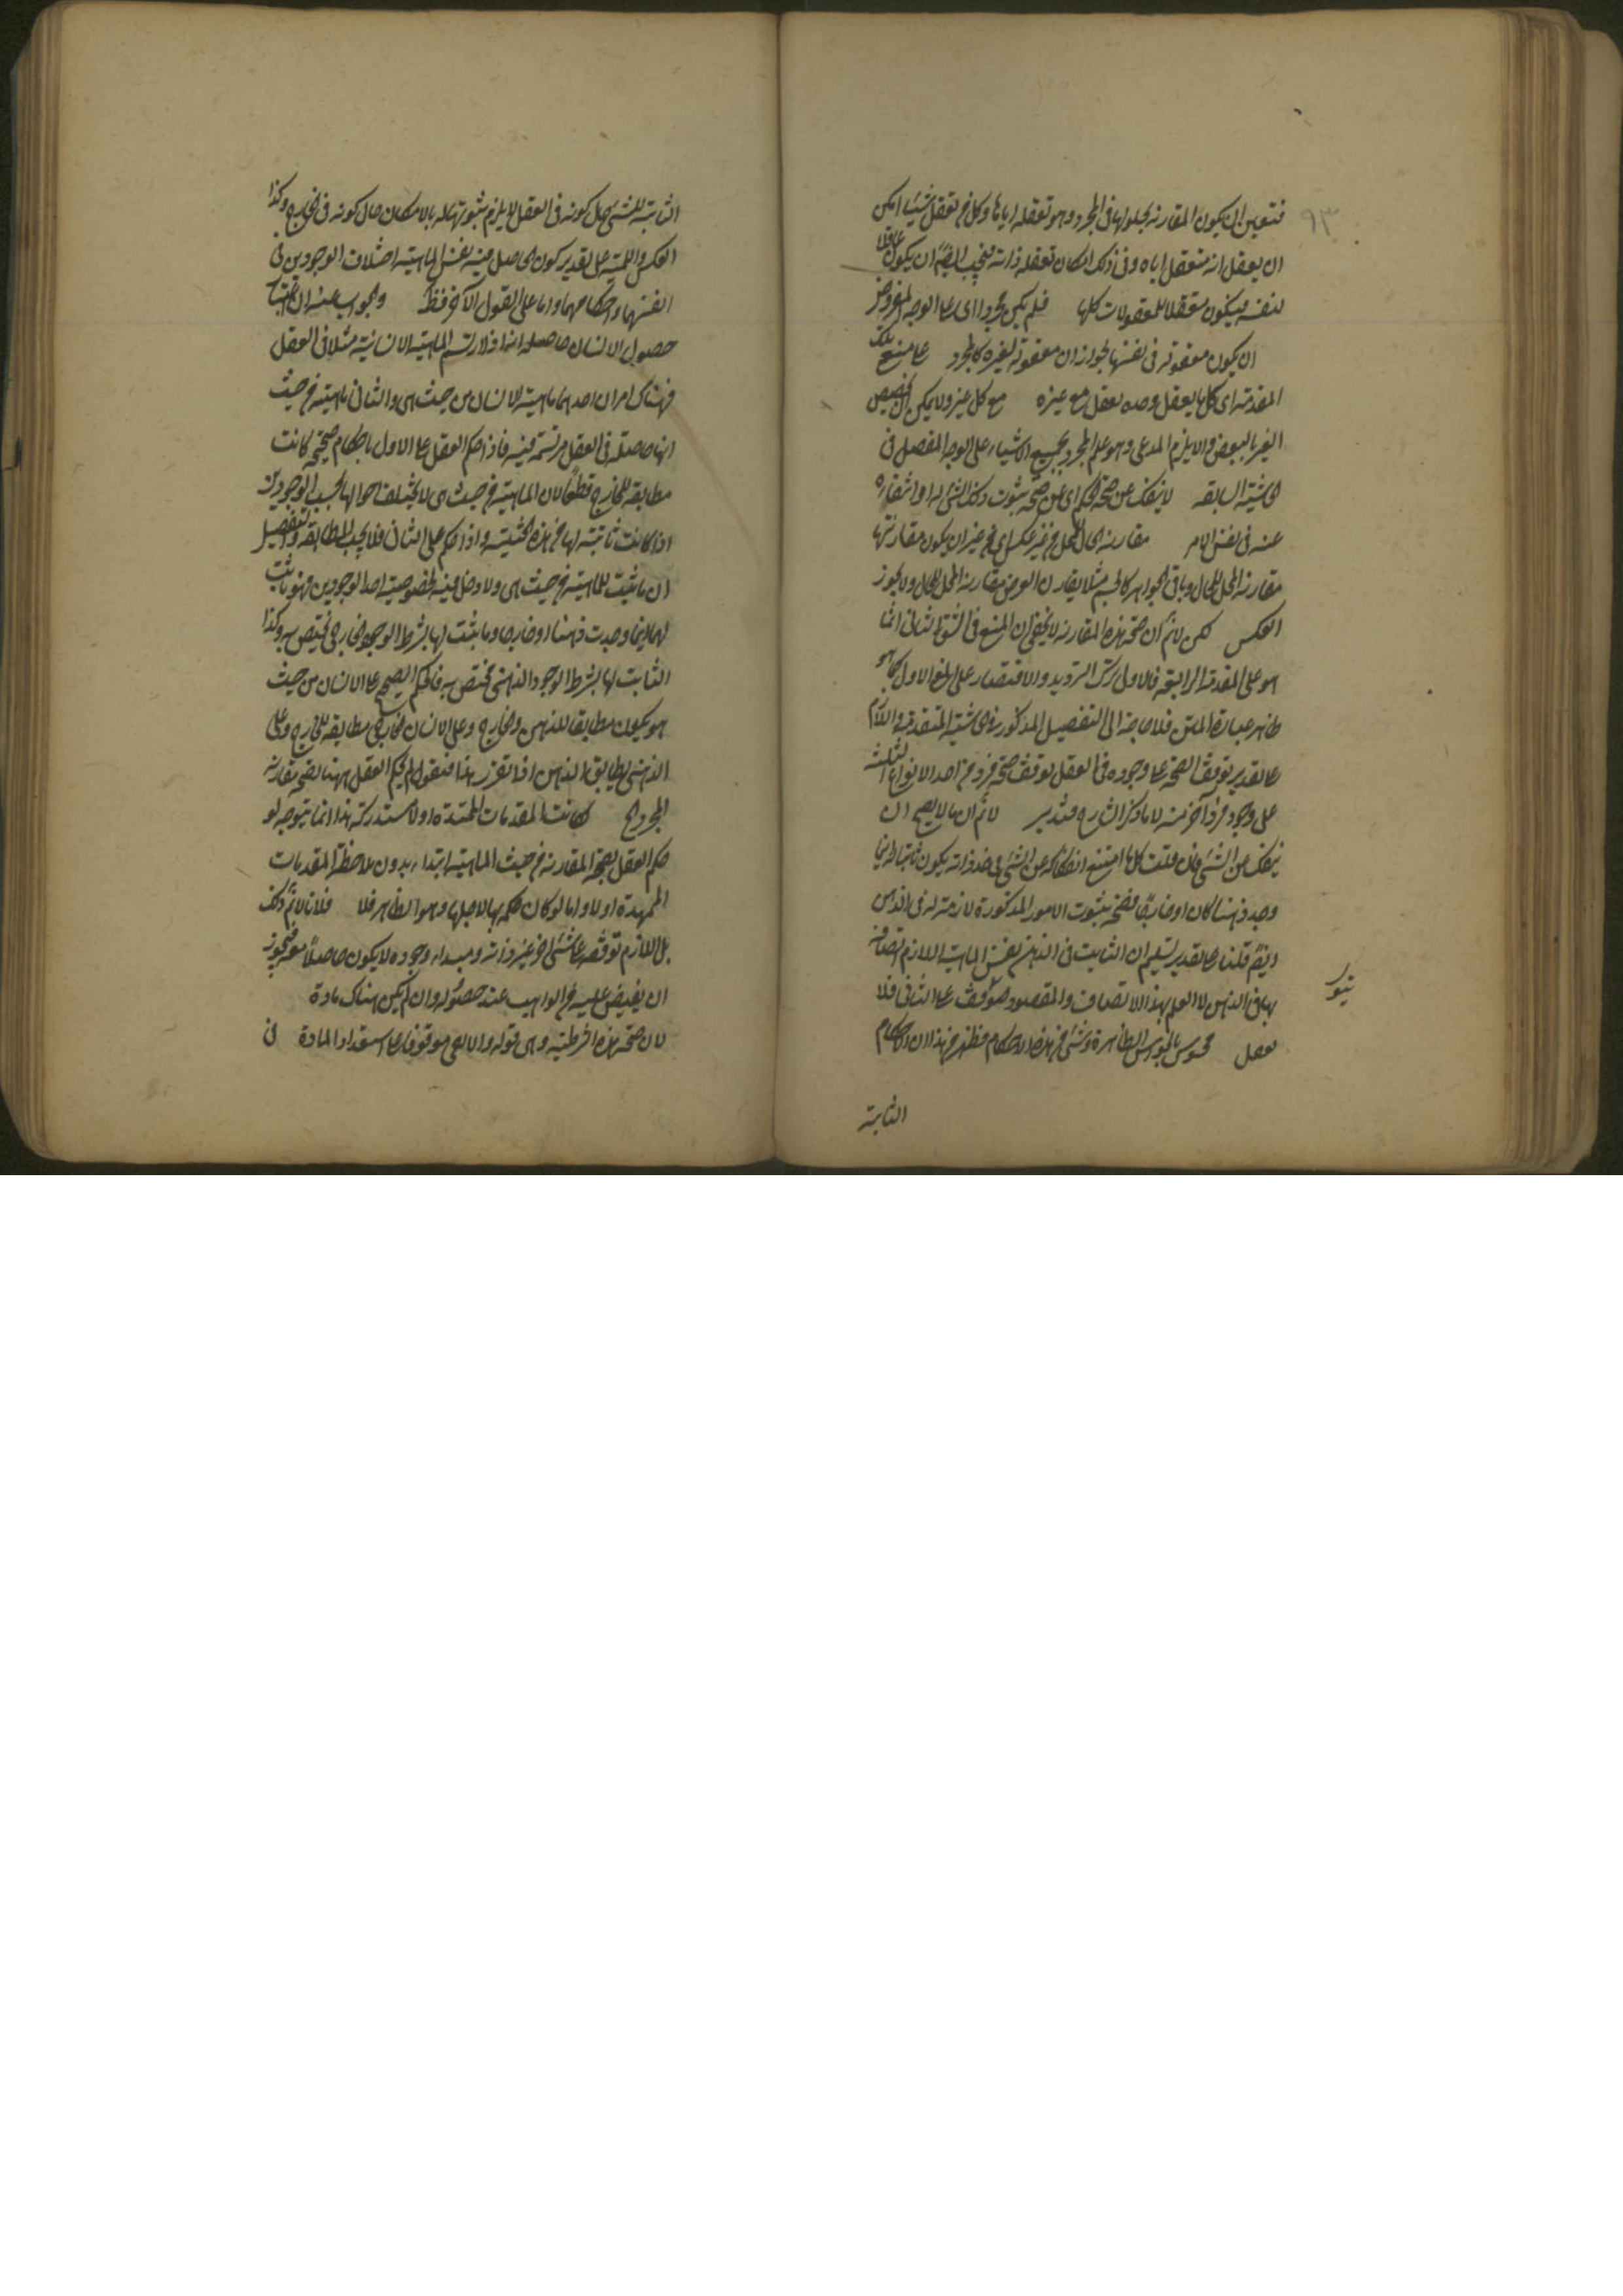 ٩٣
فتعين ان يكون المقارنة بحلولها فى المجرد وهو تعقله اياها وكل من تعقل شيئا امكن
ان يعقل انه متعقل اياه وفى ذلك امكان تعقله ذاته فيجب ايضا ان يكون عاقلا
لنفسه فيكون متعقلا للمعقولات كلها فلم يكن مجردا اى على الوجه المفروض
ان يكون معقوله فى نفسها لجواز ان معقوله لغيره كالمجرد على منع تلك
المقدمة اى كل ما يعقل وحده يعقل مع غيره مع كل غير ولا يمكن تخصيص
الغير بالبعض والا يلزم المدعى وهو علم المجرد بجميع الاشياء على الوجه المفصل فى
الحاشية السابقة لا ينفك عن صحة الحكم اى عن صحة ثبوت ذلك الشئ له او انتفاءه
عنه فى نفس الامر مقارنة الحال للمحل من غير عكس اى من غير ان يكون مقارنتها
مقارنة المحل للحال وباقى الجواهر كالجسم مثلا يقارن العرض مقارنة المحل للحال ولا يجوز
العكس لكن لا نم ان صحة هذه المقارنة لا يخفى ان المنع فى الشق الثانى انما
هو على المقدمة الرابعة فالاولى ترك الترديد والاقتصار على المنع الاول كما هو
ظاهر عبارة المتن فلا حاجة الى التفصيل المذكور فى الحاشية المتقدمة واللام
على تقدير توقف الصحة على وجوده فى العقل توقف صحة فرد من احد الانواع الثلثة
على وجود فرد آخر منه لا ما ذكر الشارح فتدبر لا نم ان ما لا يصح ان
ينفك عن الشئ فان قلت كلما امتنع انفكاكه عن الشئ فى حد ذاته يكون ثابتا له اينما
وجد ذهنا كان او خارجا فصحة ثبوت الامور المذكورة لازمة له فى الذهن
ايضا قلنا على تقدير تسليم ان الثابت فى الذهن نفس الماهية اللازم اتصافه
بها فى الذهن لا العلم بهذا الاتصاف والمقصود موقوف على الثانى فلا
تعقل محسوس بالحواس الظاهرة وشئ من هذه الاحكام فظهر من هذا ان الاحكام
الثابتة
الثابتة للشئ حال كونه فى العقل لا يلزم ثبوتها له بالامكان حال كونه فى الخارج وكذا
العكس واللمية على تقدير كون الحاصل فيه نفس الماهية اختلاف الوجودين فى
انفسهما واحكامهما واما على القول الآخر فظ والجواب عنه ان
حصول الانسان حاصله انه اذا ارتسم الماهية الانسانية مثلا فى العقل
فهناك امران احدهما ماهية الانسان من حيث هى والثانى ماهيته من حيث
انها حاصلة فى العقل مرتسمة فيه فاذا حكم العقل على الاول باحكام صحيحة كانت
مطابقة للخارج قطعا لان الماهية من حيث هى لا يختلف احوالها بحسب الوجودين
اذا كانت ثابتة لها من هذه الحيثية واذا حكم على الثانى فلا يجب المطابقة والتفصيل
ان ما يثبت للماهية من حيث هى ولا دخل فيه لخصوصية احد الوجودين فهو ثابت
لها اينما وجدت ذهنا او خارجا وما يثبت لها بشرط الوجود الخارجى يختص به وكذا
الثابت لها بشرط الوجود الذهنى مختص به فالحكم الصحيح على الانسان من حيث
هو يكون مطابقا للذهن والخارج وعلى الانسان الخارجى مطابقه للخارج وعلى
الذهنى يطابق الذهن اذا تقرر هذا فنقول لم يحكم العقل ههنا بصحة مقارنة
المجرد كانت المقدمات الممهدة اولا مستدركة هذا انما يتوجه لو
حكم العقل بصحة المقارنة من حيث الماهية ابتداء بدون ملاحظة المقدمات
الممهدة اولا واما لو كان حكمه بها لاجلها وهو الظاهر فلا فلانا لا نم ذلك
بل اللازم توقفه على شئ آخر غير ذاته ومبداء وجوده لا يكون حاصلا معه فيجوز
ان يفيض عليه من الواهب عند حصوله وان لم يكن هناك مادة
لان صحة هذه الشرطية وهى قوله والا لهى موقوفا على استعداد المادة فى